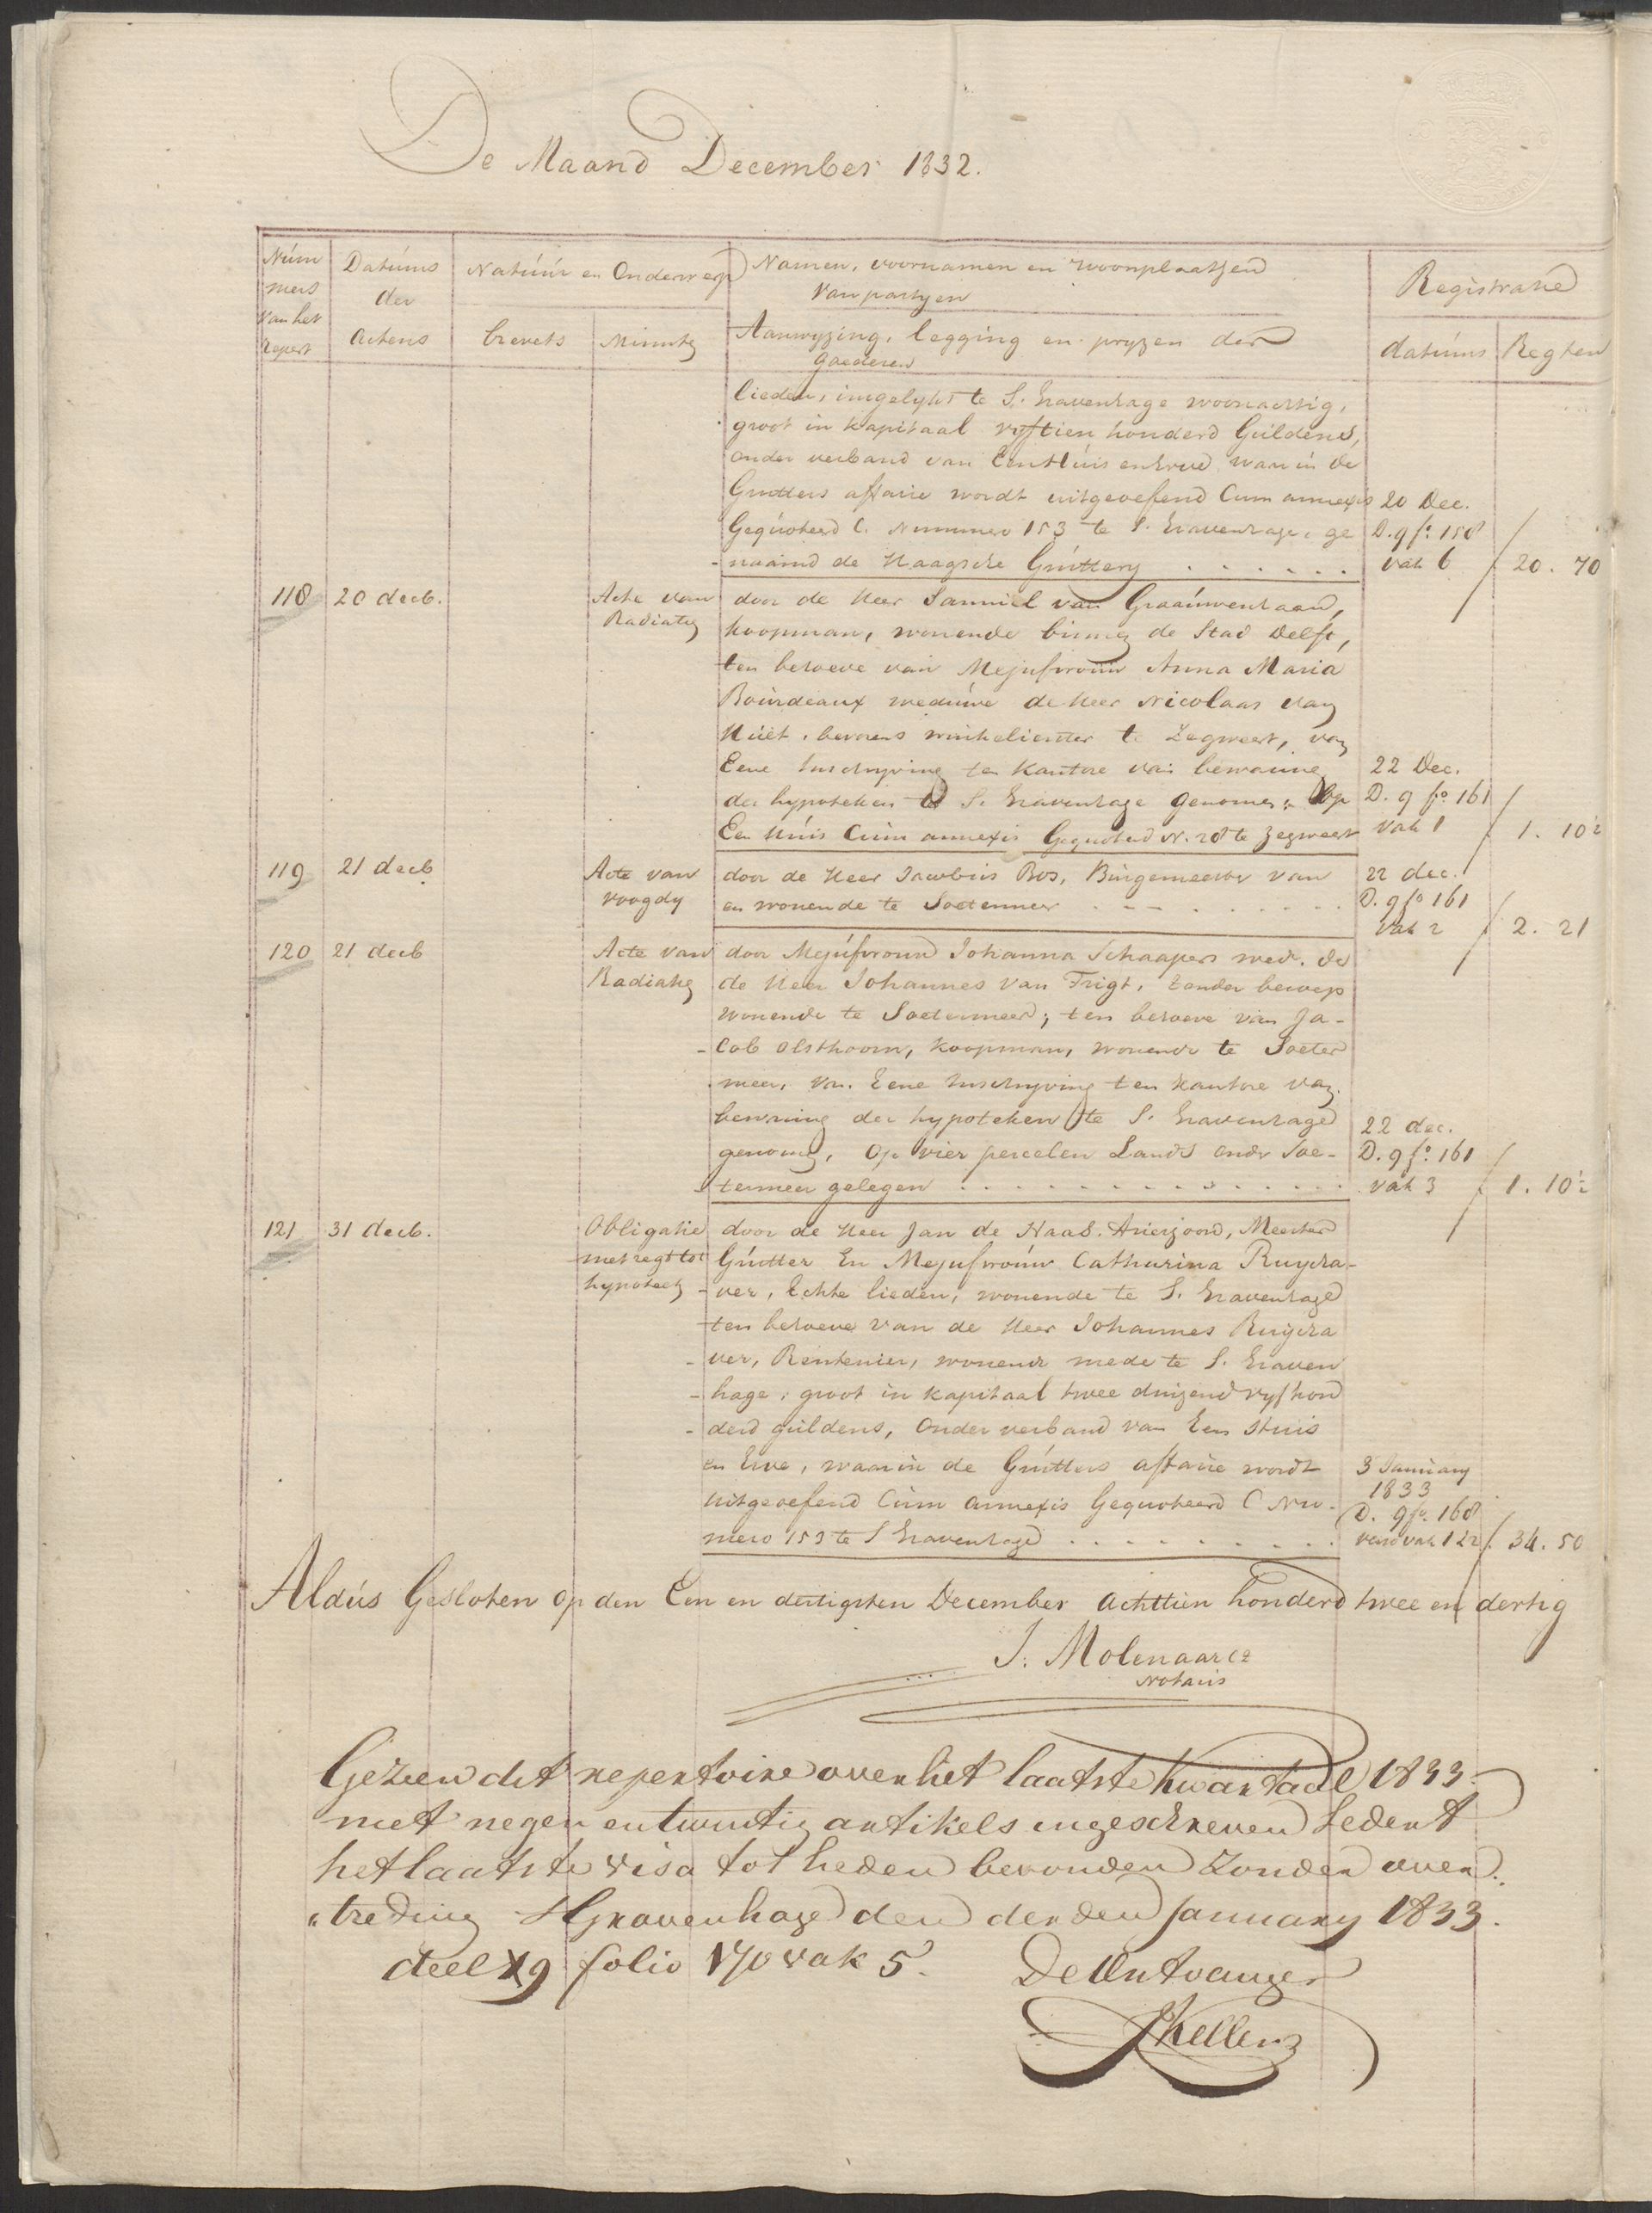 De Maand December 1832.
Núm
mers
van het
Repert
Datúms
der
Actens
Natúúr en Onderwerp
brevets
Minutz
Namen, voornamen en woonplaatsen
van partyen
Aanwyzing, legging en pryzen der
goederen
Registratie
datúms
Regten
lieden, insgelyks te S. Gravenhage woonachtig,
groot in kapitaal vyftien honderd Guldens,
onder verband van Een Húis en Erve waar in de
Grutters affaire wordt uitgeoefend Cum annexis
20 Dec.
Gequoteerd C. Nummero 153 te S. Gravenhage, ge
D. 9 fo. 158
naamd de Haagsche Grúttery . . . . . .
vak 6
20. 70
118
20 decb.
Acte van
Radiatie
door de Heer Samuel van Graaúwenhaan,
koopman, wonende binnen de Stad Delft,
ten behoeve van Mejufvrouw Anna Maria
Boúrdeaux weduwe de Heer Nicolaas van
Húët, bevorens winkelierster te Zegweert, van
Eene Inschryving ten kantore van bewaring
22 Dec.
der hypoteken te S. Gravenhage genomen, Op
D. 9 fo. 161
Een Húis Cúm annexis Gequoteerd N. 28 te Zegweert
vak 1
1. 10½
119
21 decb
Acte van
voogdy
door de Heer Jacobus Bos, Búrgemeester van
en wonende te Soetermeer . . . . . . . .
22 dec.
D. 9 fo 161
vak 2
2. 21
120
21 decb
Acte van
Radiatie
door Mejúfvrouw Johanna Schaapers wed. de
de Heer Johannes van Trigt, zonder beroep
wonende te Soetermeer, ten behoeve van Ja-
-cob Olsthoorn, koopman, wonende te Soeter
meer, van Eene Inschryving ten kantore van
bewaring der hypoteken te S. Gravenhage
22 dec.
genomen, Op vier percelen Lands onder Soe-
D. 9 fo. 161
termeer gelegen . . . . . . . . . . . .
vak 3
1. 10½
121
31 decb.
Obligatie
met regt tot
hypoteek
door de Heer Jan de Haas Arierzoon, Meester
Grútter En Mejufvroúw Catharina Ruygra-
-ver, Echte lieden, wonende te S. Gravenhage
ten behoeve van de Heer Johannes Ruygra
-ver, Rentenier, wonende mede te S. Graven
-hage, groot in kapitaal twee duizend vyf hon
-derd guldens, Onder verband van Een Huis
en Erve, waarin de Grútters affaire wordt
uitgeoefend Cúm annexis Gequoteerd C Nu-
mero 153 te S Gravenhage . . . . . . . . . .
3 January
1833
D. 9 fo. 168
verso vak 1 & 2
34. 50
Aldús Gesloten op den Een en dertigsten December Achttien honderd twee en dertig
J. Molenaar Cz
Notaris
Gezien dit repertoire over het laatste kwartaal 1833
met negen en twintig artikels ingeschreven sedert
het laatste visa tot heden bevonden zonder over
"treding SGravenhage den derden January 1833.
deel 9 folio 170 vak 5.
De Ontvanger